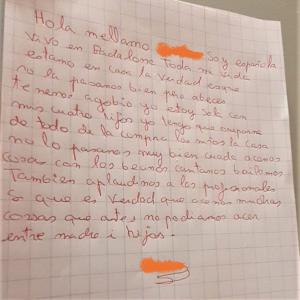 Hola mellamo soy española
vivo en Badalona Toda mi vida
estamo en casa la verdad es que
no la pasamos bien pero abeces
tenemos agobio yo estoy sola con
mis cuatro hijos yo tengo que ocuparme
de todo de la compra los niños la casa
no lo pasamos muy bien cuado acemos
cosas con los becinos cantamos bailamos
Tambien aplaudimos a los profesionales
Si que es verdad que acemos muchas
cosas que antes no podiamos acer
entre madre i hijos.